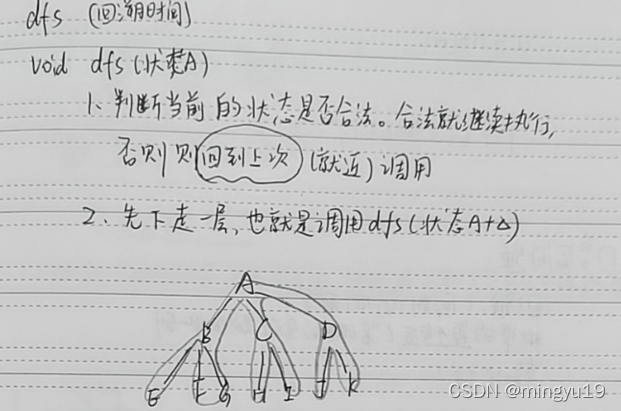 dfs (回溯时间)
void dfs(状态A)
1、判断当前的状态是否合法。合法就继续执行,
否则则回到上次(就近)调用
2、先下走一层,也就是调用dfs(状态A+Δ)
A
B C D
E F G H I J K
CSDN @mingyu19